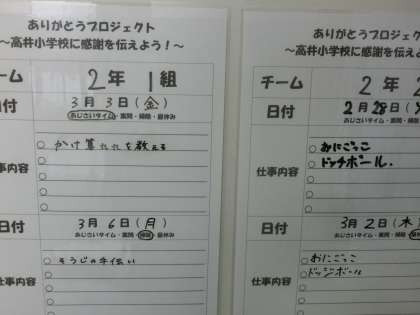 ありがとうプロジェクト
～高井小学校に感謝を伝えよう！～
チーム 2年 1組
日付 3月3日(金)
あじさいタイム・業間・掃除・昼休み
仕事内容
○かけ算九九を教える
○
○
○
○
日付 3月6日(月)
あじさいタイム・業間・掃除・昼休み
仕事内容
○そうじの手伝い
○
○
ありがとうプロジェクト
～高井小学校に感謝を伝え
チーム 2年
日付 2月28日(
あじさいタイム・業間・掃除・昼休み
仕事内容
○おにごっこ
○ドッチボール.
○
○
○
日付 3月2日(木)
あじさいタイム・業間・掃除
仕事内容
○おにごっこ
○ドッジボール
○